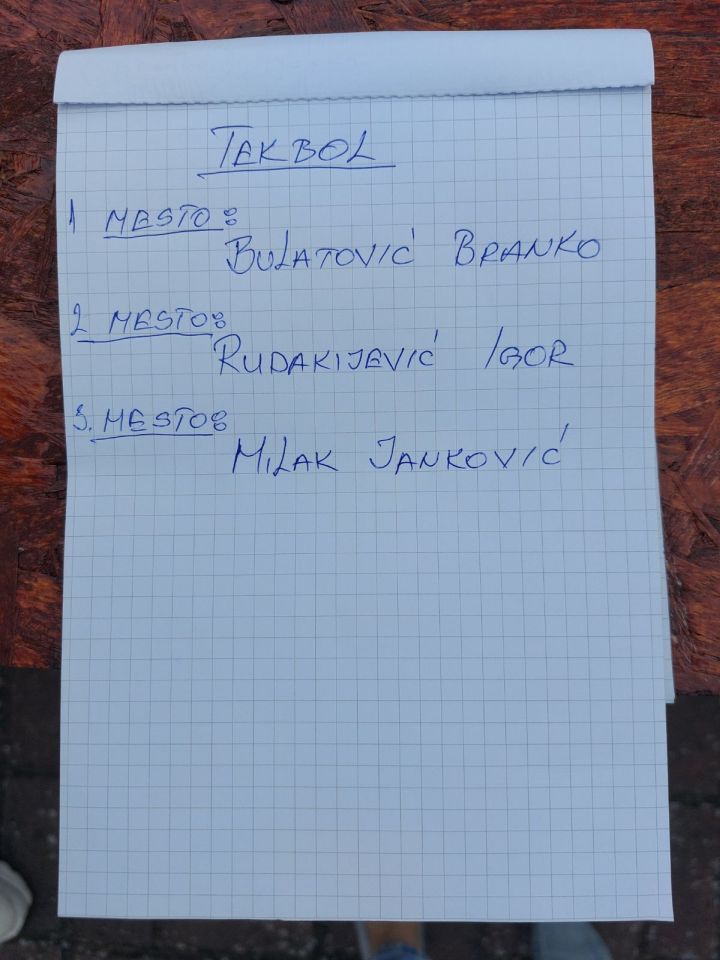 TEKBOL
1 MESTO:
BULATOVIĆ BRANKO
2 MESTO:
RUDAKIJEVIĆ IGOR
3. MESTO:
MILAK JANKOVIĆ